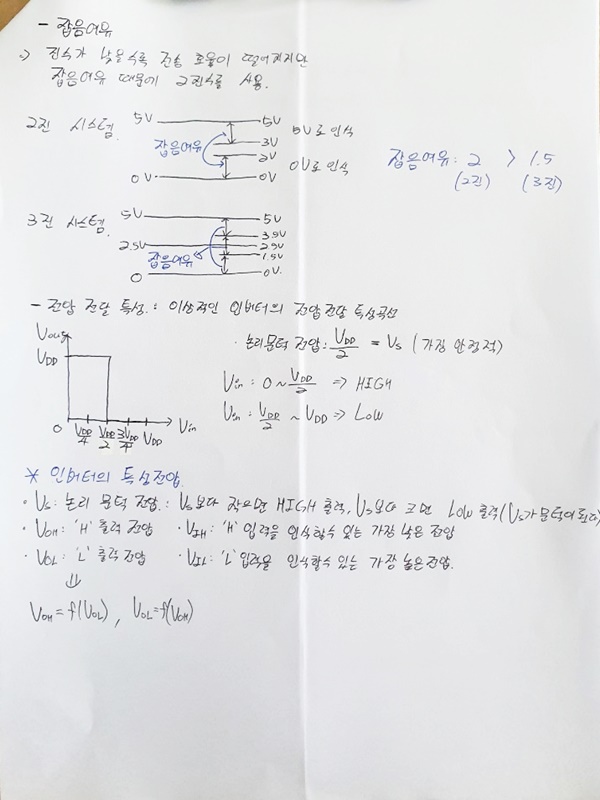 - 잡음여유
:) 진수가 낮을수록 전송 효율이 떨어지지만
잡음여유 때문에 2진수를 사용.
2진 시스템.
5V 5V
3V 5V로 인식
잡음여유 2V
0V로 인식
0V 0V
잡음여유: 2 > 1.5
(2진) (3진)
3진 시스템.
5V 5V
3.5V
2.5V 2.5V
잡음여유 1.5V
0 0V.
- 전압 전달 특성. : 이상적인 인버터의 전압전달 특성곡선
Vout
VDD
0 VDD/4 VDD/2 3VDD/4 VDD Vin
· 논리문턱 전압: VDD/2 = Vs (가장 안정적)
Vin : 0 ~ VDD/2 => HIGH
Vin : VDD/2 ~ VDD => LOW
* 인버터의 특성전압.
· Vs: 논리 문턱 전압. : Vs보다 작으면 HIGH 출력, Vs보다 크면 Low 출력 (Vs가 문턱이 된다)
· VOH: 'H' 출력 전압 · VIH: 'H' 입력을 인식할수 있는 가장 낮은 전압
· VOL: 'L' 출력 전압 · VIL: 'L' 입력을 인식할수 있는 가장 높은 전압.
⇓
VOH = f(VOL), VOL = f(VOH)